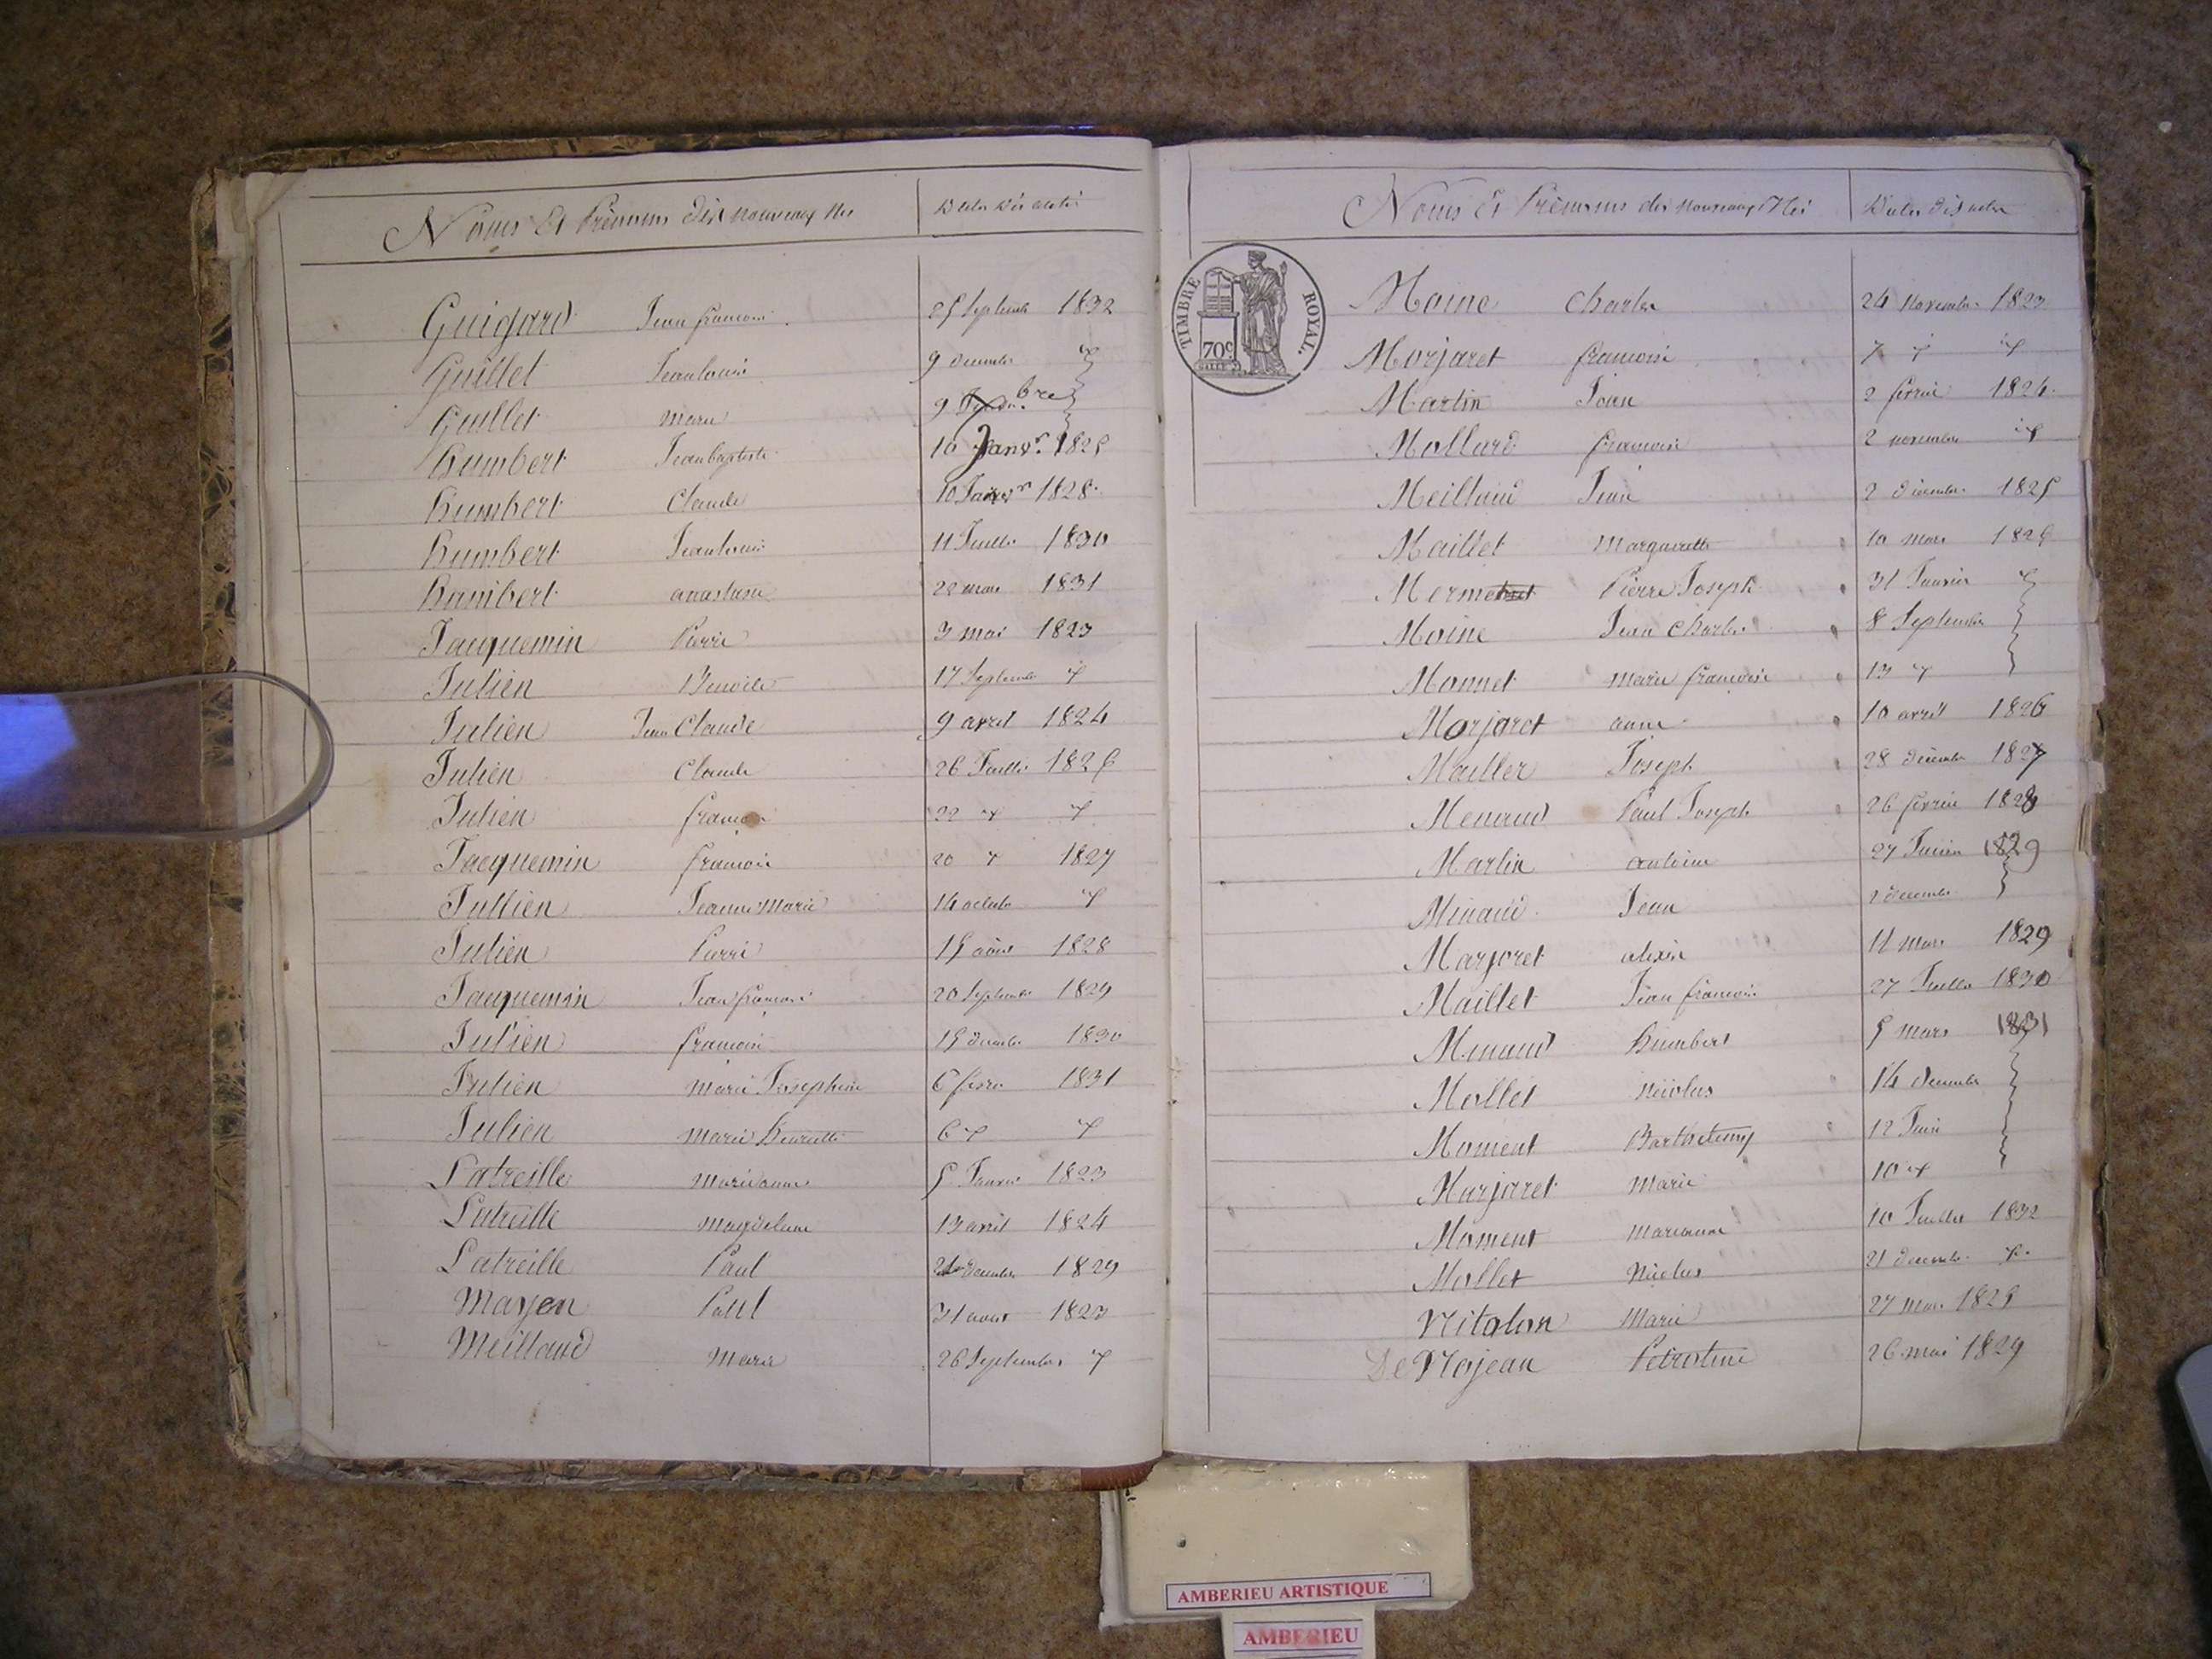 Noms Et Prénoms des nouveaux Nés Dates des actes
Guigard Jean francois 25 Septembre 1832
Guillet Jean louis 9 decembre id
Guillet marie 9 bre
humbert Jean baptiste 10 Janv.r 1825
humbert Claude 10 Janvr 1828
humbert Jean louis 11 Juillet 1830
humbert anastasie 22 mars 1831
Jacquemin Pierre 3 mai 1823
Julien Benoite 17 Septembre id
Julien Jean Claude 9 avril 1824
Julien Claude 26 Juillet 1825
Julien francois 22 id id
Jacquemin francois 20 id 1827
Jullien Jeanne Marie 14 octobre id
Julien Pierre 15 août 1828
Jacquemin Jean francois 20 Septembre 1829
Julien francoise 15 decembre 1830
Julien marie Josephine 6 fevrier 1831
Julien marie henriette 6 id id
Latreille marieanne 5 Janvier 1823
Latreille magdelaine 13 avril 1824
Latreille Paul decembre 1829
Mayen Paul 31 aout 1823
Meilland Marie 26 Septembre id
Noms Et Prénoms des nouveaux Nés Dates des actes
TIMBRE ROYAL.
70c
Moine Charles 24 Novembre 1823
Morjaret francoise 7 id id
Martin Jean 2 fevrier 1824
Mollard francoise 2 novembre id
Meilland Jean 2 décembre 1825
Maillet Marguerette 10 mars 1825
Mermet Pierre Joseph 31 Janvier id
Moine Jean Charles 8 Septembre
Monnet Marie francoise 13 id
Morjaret anne 10 avril 1826
Mailler Joseph 28 décembre 1827
Menaud Paul Joseph 26 fevrier 1828
Martin antoine 27 1829
Minaud Jean 2 decembre
Marjoret alexis 11 mars 1829
Maillet Jean francois 27 Juillet 1830
Menaud humbert 5 mars 1831
Mollet Nicolas 14 decembre
Moment Barthelemy 12 Juin
Marjaret Marie 10 id
Moment marianne 10 Juillet 1832
Mollet Nicolas 21 decembre id
Nitalon Marie 27 1825
De Nojean Petroline 26 mai 1829
AMBERIEU ARTISTIQUE
AMBERIEU